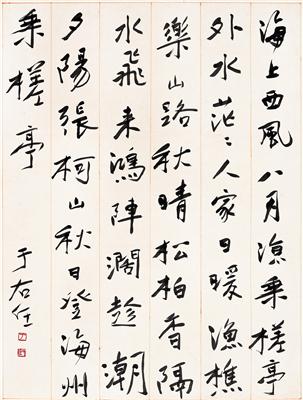 海上西風八月涼乘槎亭
外水茫々人家日暖漁樵
樂山路秋晴松柏香隔
水飛來鴻陣濶趁潮
夕陽張柯山秋日登海州
乘槎亭
于右任